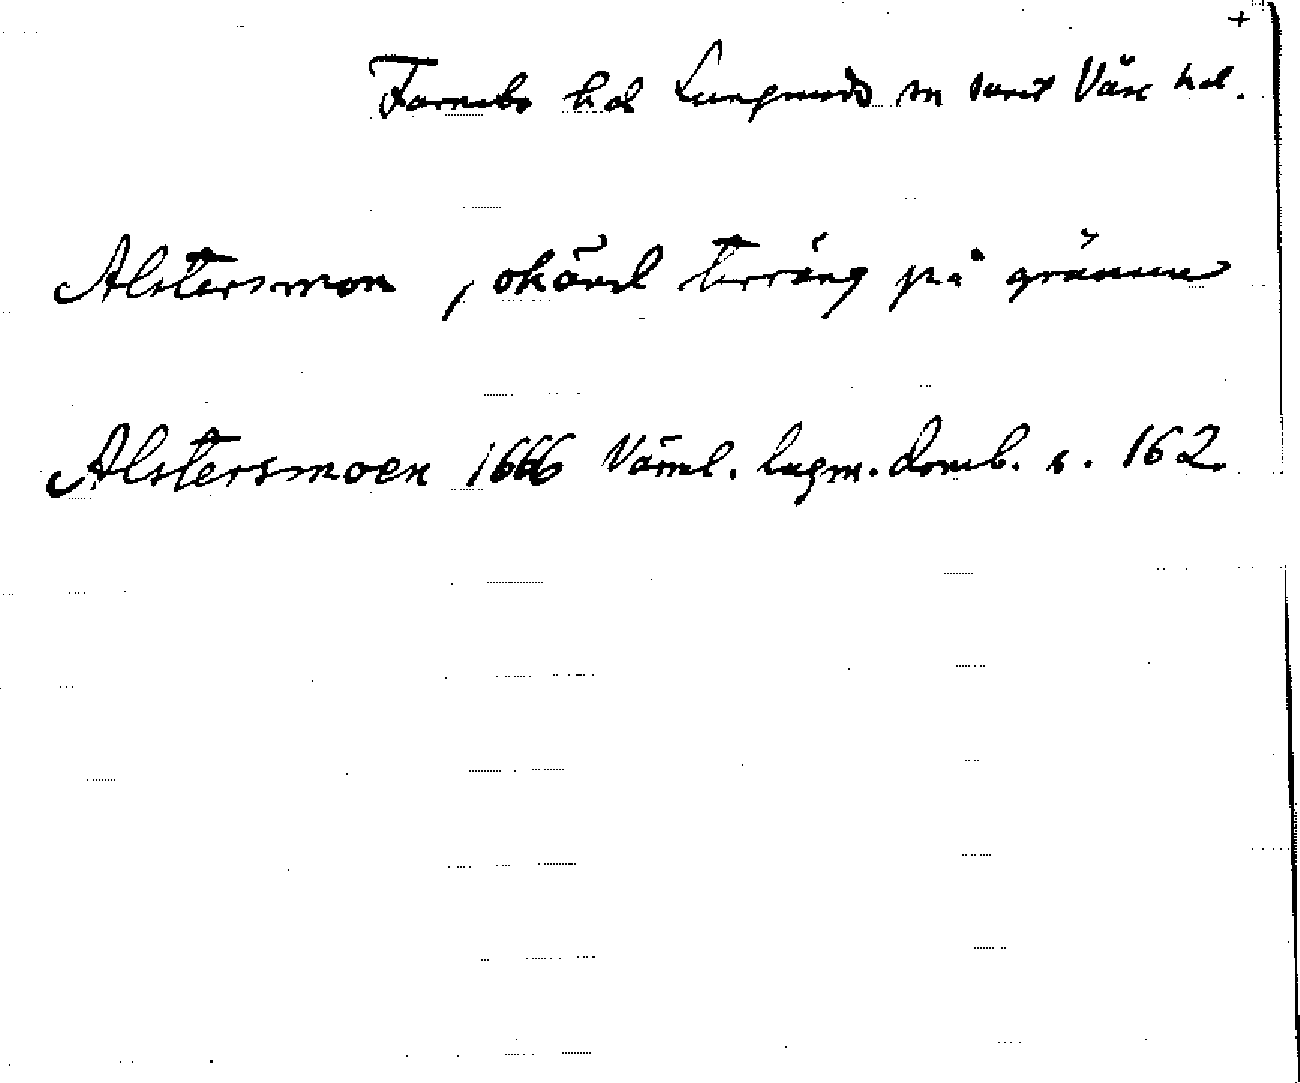 +
Färnebo hd Lungsunds sn samt Väse hd.
Alstersmon , okänd terräng på gränsen
Alstersmoen 1666 Värml. lagm. domb. s. 162